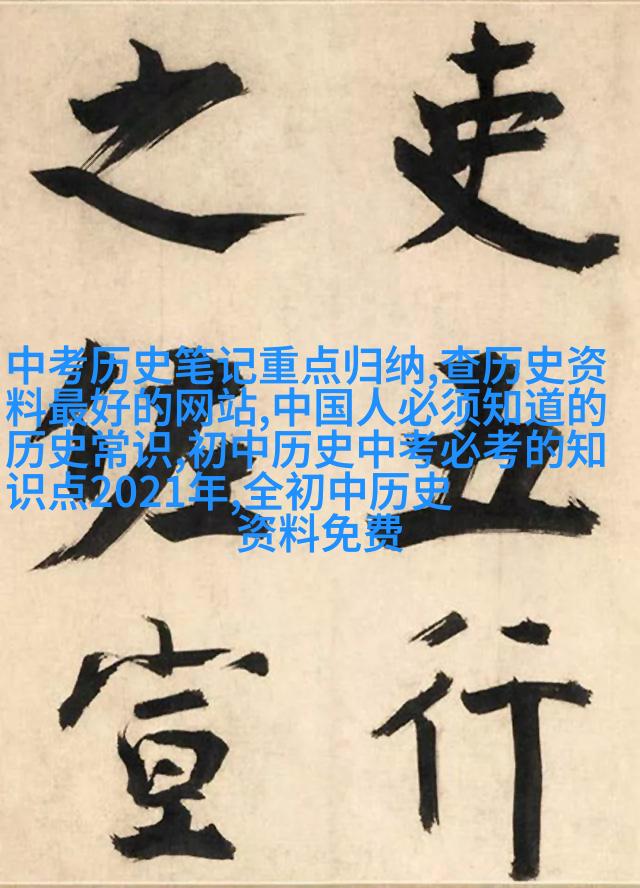 吏五行
之佐宣
中考历史笔记重点归纳,查历史资
料最好的网站,中国人必须知道的
历史常识,初中历史中考必考的知
识点2021年,全初中历史
资料免费